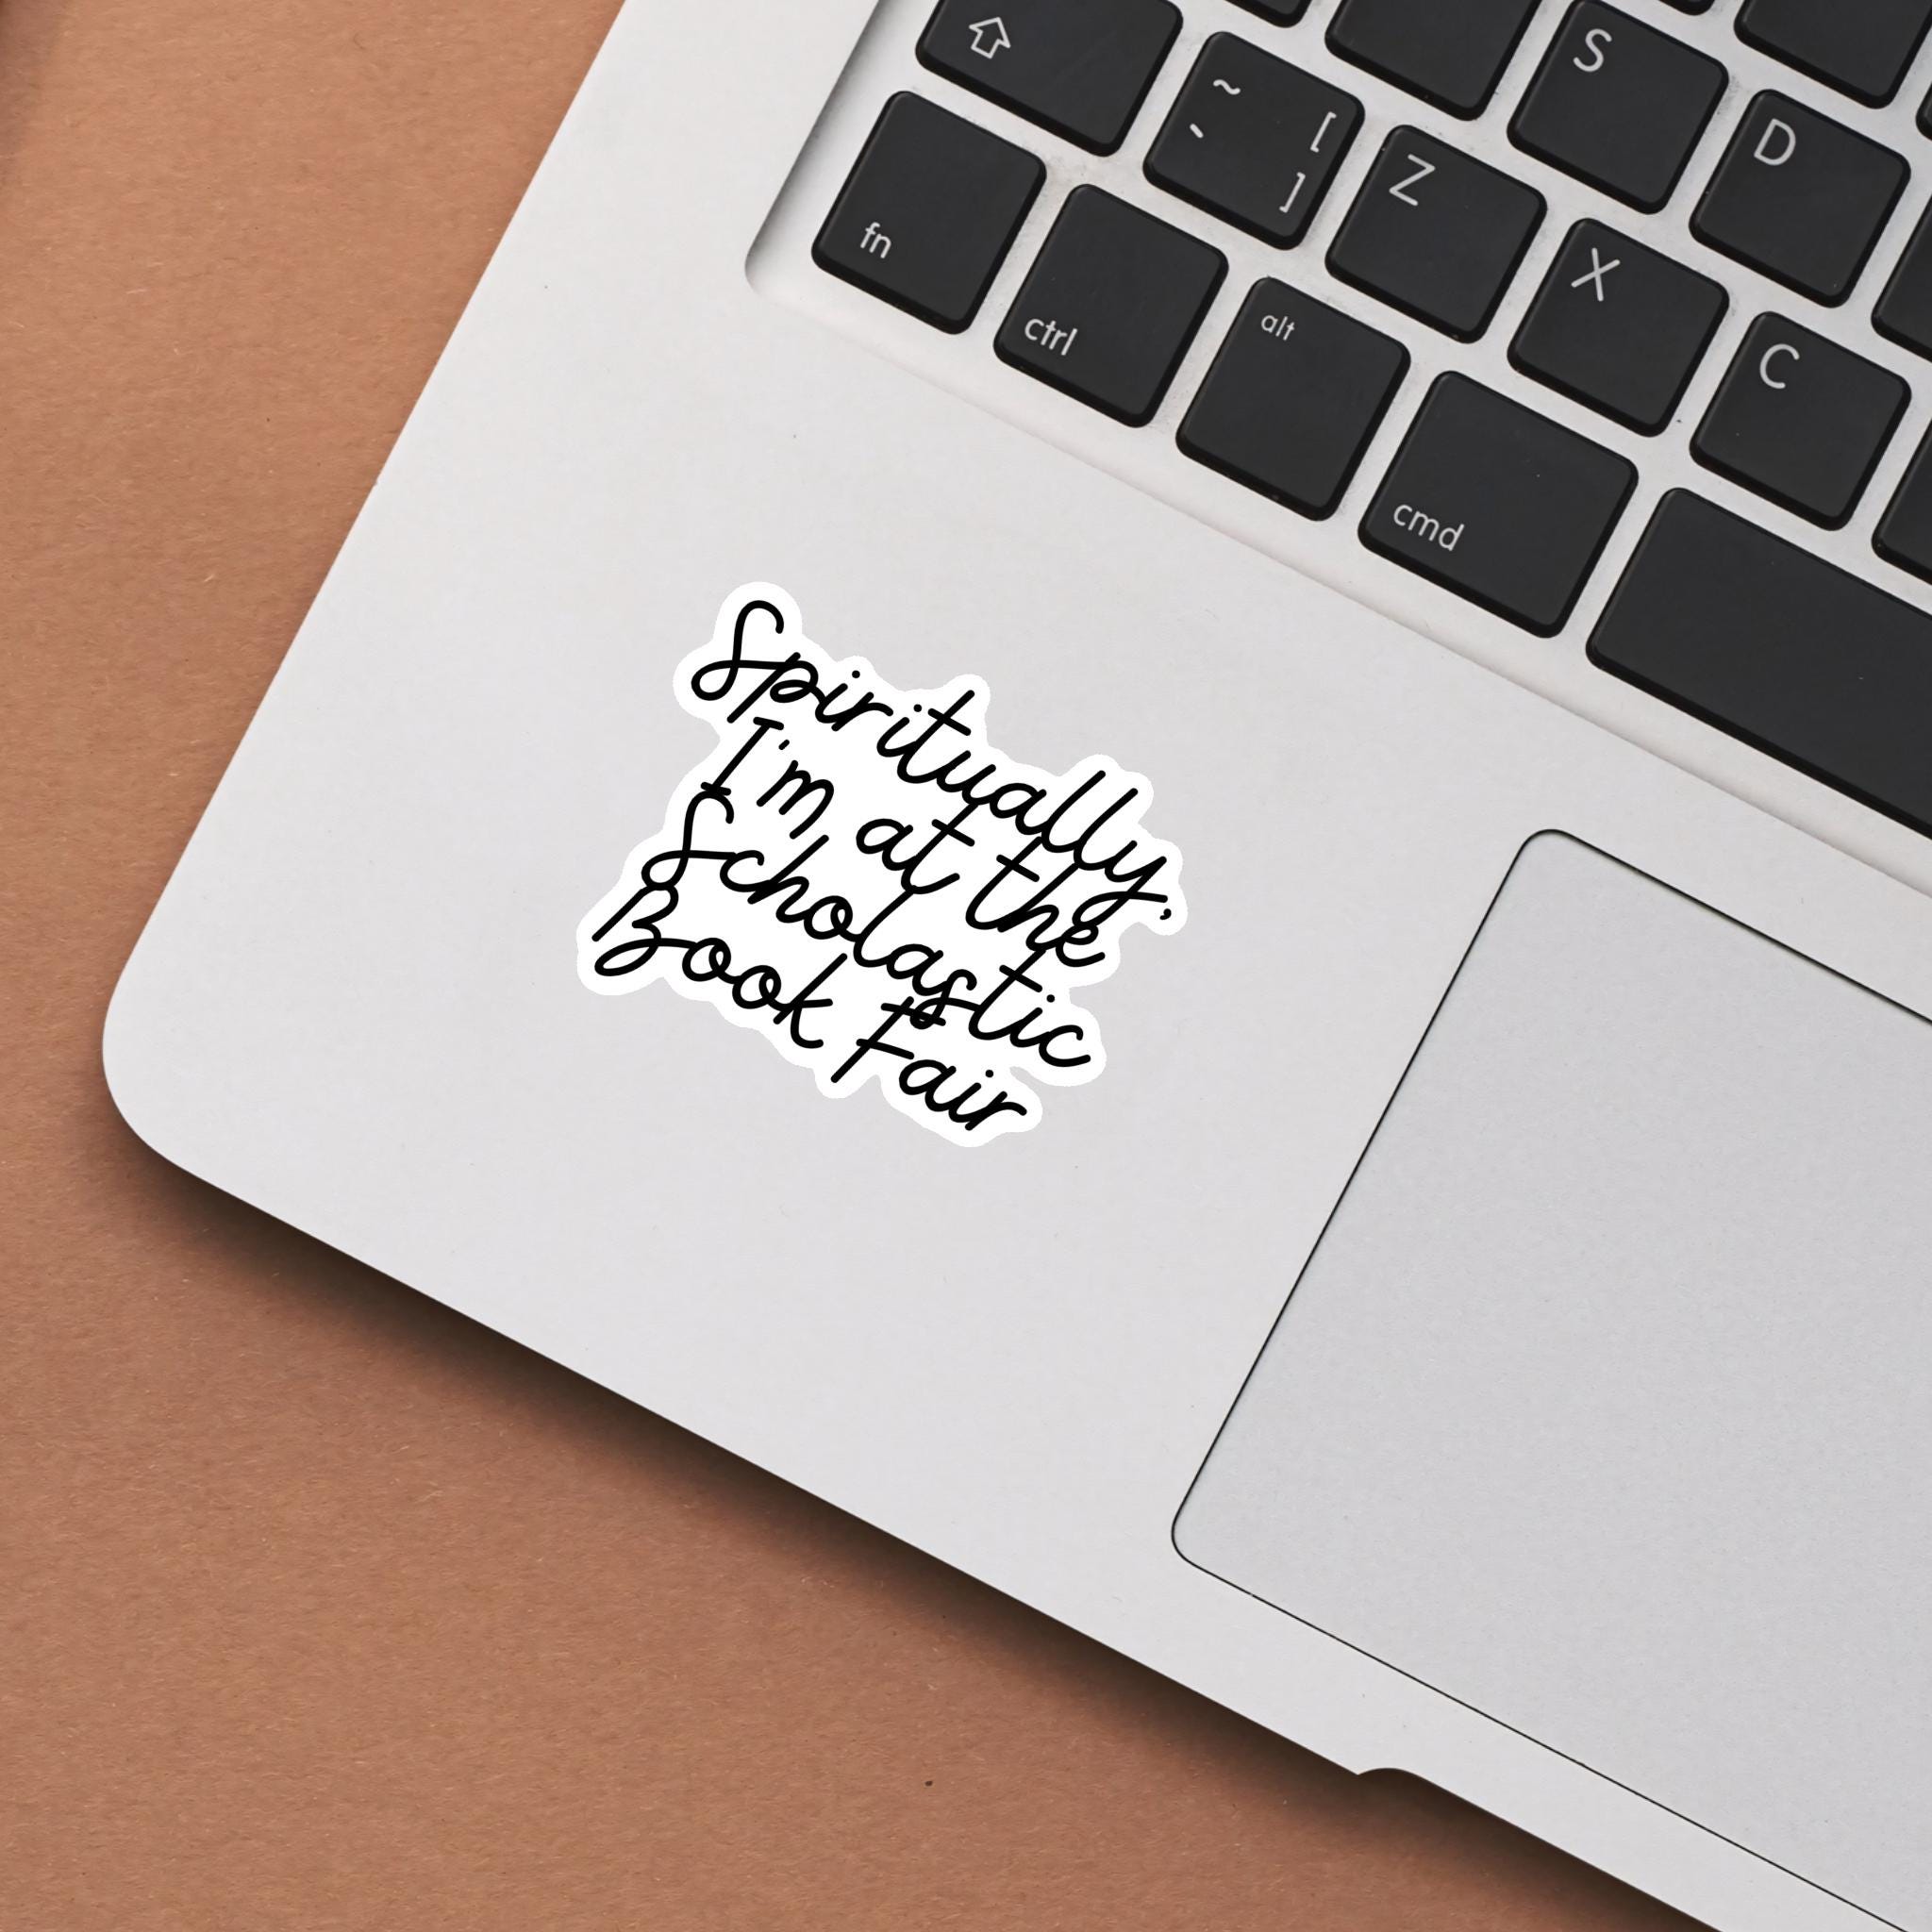 S
~ [
` ]
Z
D
fn
X
ctrl
alt
C
cmd
Spiritually,
I'm at the
Scholastic
Book Fair